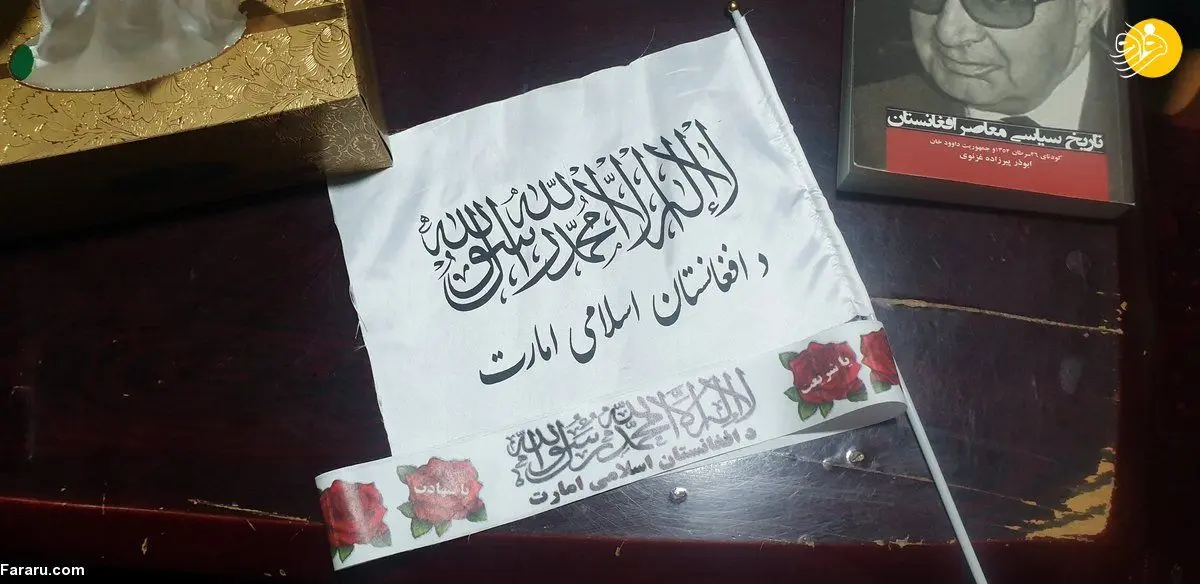 لا إله إلا الله محمد رسول الله
د افغانستان اسلامی امارت
لا إله إلا الله محمد رسول الله
د افغانستان اسلامی امارت
یا شریعت
یا شهادت
تاریخ سیاسی معاصر افغانستان
کودتای ۲۶ سرطان ۱۳۵۲ و جمهوریت داوود خان
ابوذر پیرزاده غزنوی
فرارو
Fararu.com